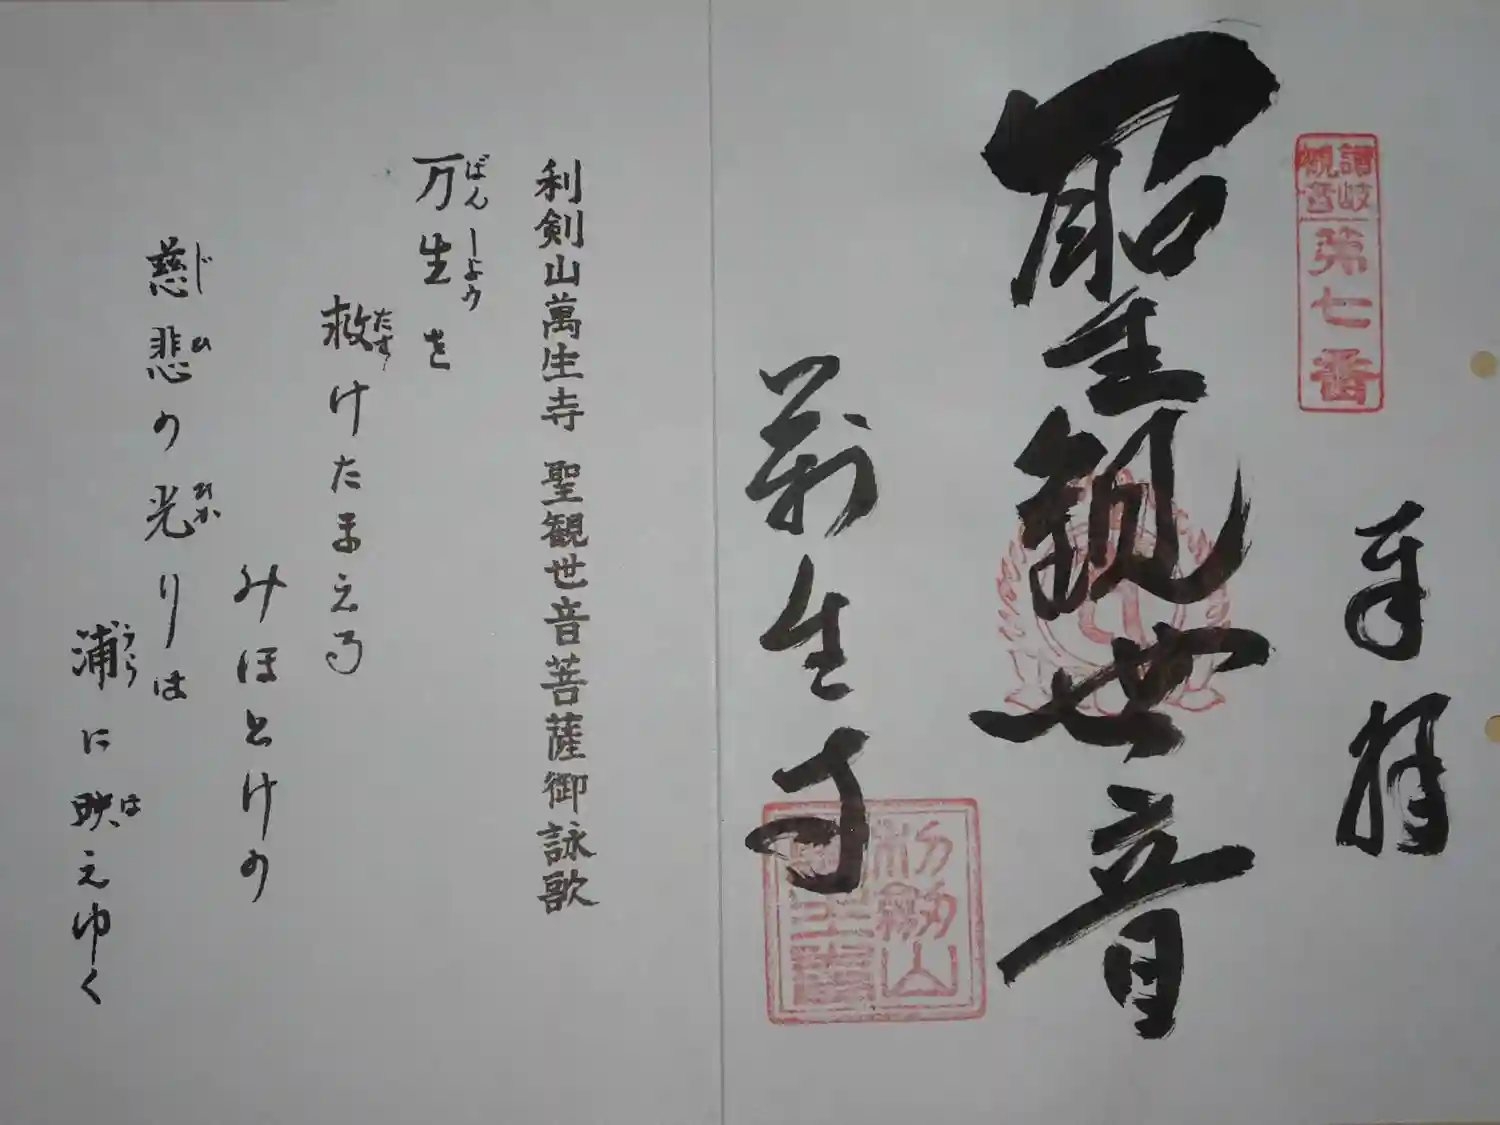 奉拝
讃岐
観音
第七番
聖観世音
萬生寺
利剣山萬生寺 聖観世音菩薩御詠歌
万生を
ばんしょう
救けたまえる
たす
みほとけの
慈悲の光りは
じひ ひか
浦に映えゆく
うら は